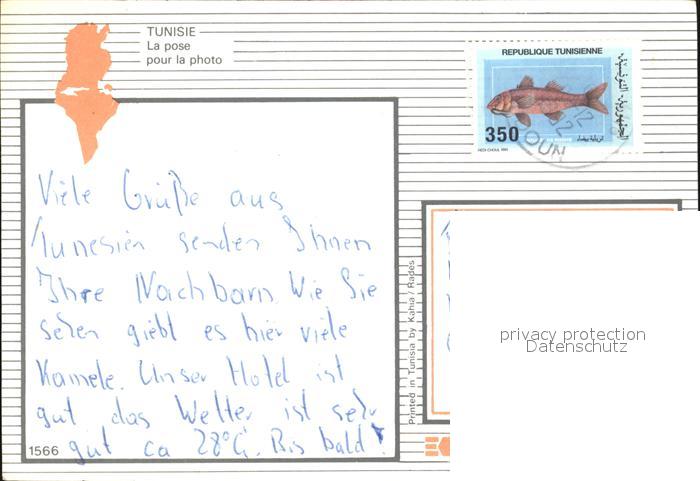 TUNISIE
La pose
pour la photo
REPUBLIQUE TUNISIENNE
الجمهورية التونسية
350
HEDI CHOUL 1991
OUN
Viele Grüße aus
Tunesien senden Ihnen
Ihre Nachbarn. Wie Sie
sehen giebt es hier viele
Kamele. Unser Hotel ist
gut das Wetter ist sehr
gut ca 28°C. Bis bald!
1566
Printed in Tunisia by Kahia / Rades
privacy protection
Datenschutz